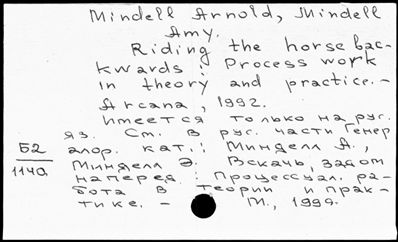 Mindell Arnold, Mindell
Amy.
Riding the horse bac-
kwards : Process work
in theory and practice. –
Arcana, 1992.
Имеется только на рус.
яз. См. в рус. части генер
Б2 алор. кат.: Минделл А.,
1140 Минделл Э. Вскачь, задом
наперед : Процессуал. ра-
бота в теории и прак-
тике. – М., 1999.